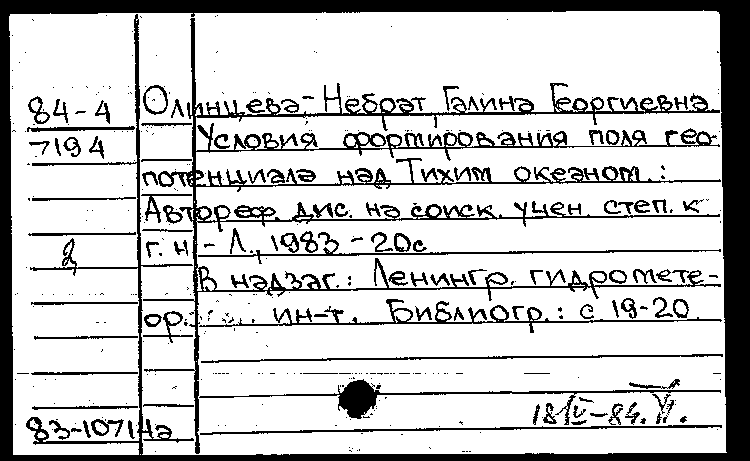 84-4 Олинцева-Небрат, Галина Георгиевна
7194 Условия формирования поля гео-
потенциала над Тихим океаном.:
Автореф. дис. на соиск. учен. степ. к
г. н - Л., 1983 - 20с
В надзаг.: Ленингр. гидромете-
ор. ин-т. Библиогр.: с 19-20
83-10714а
18/IV-84.